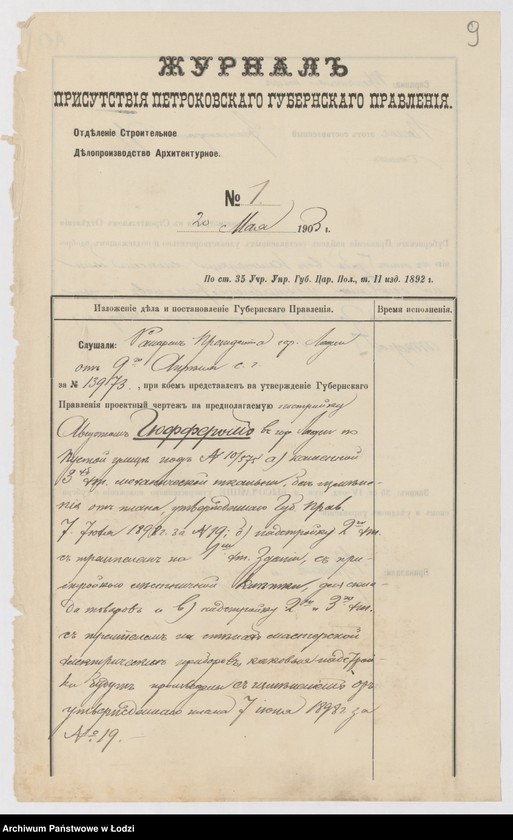 9
ЖУРНАЛЪ
ПРИСУТСТВІЯ ПЕТРОКОВСКАГО ГУБЕРНСКАГО ПРАВЛЕНІЯ.
Отдѣленіе Строительное
Дѣлопроизводство Архитектурное.
№ 1.
20 Мая 1903 г.
По ст. 35 Учр. Упр. Губ. Цар. Пол., т. II изд. 1892 г.
Изложеніе дѣла и постановленіе Губернскаго Правленія.
Время исполненія.
Слушали: Рапортъ Президента гор. Лодзи
отъ 9го Апрѣля с. г.
за № 13973, при коемъ представленъ на утвержденіе Губернскаго
Правленія проектный чертежъ на предполагаемую постройку
Августомъ въ гор. Лодзи по
Пустой улицѣ подъ № 10/575 а) каменной
3 эт. механической ткальни, безъ измѣне-
нія отъ плана, утвержденнаго Губ. Прав.
7 Іюня 1898 г. за № 19; б) надстройку 2го эт.
съ на 1мъ эт. зданіи, съ при-
стройкой лѣстничной клѣтки, для скла-
да товаровъ и в) надстройку 2го и 3го эт.
съ мастерской
каковыя надстрой-
ки будутъ произведены съ измѣненіемъ отъ
утвержденнаго плана 7 іюня 1898 г. за
№ 19. —
Archiwum Państwowe w Łodzi